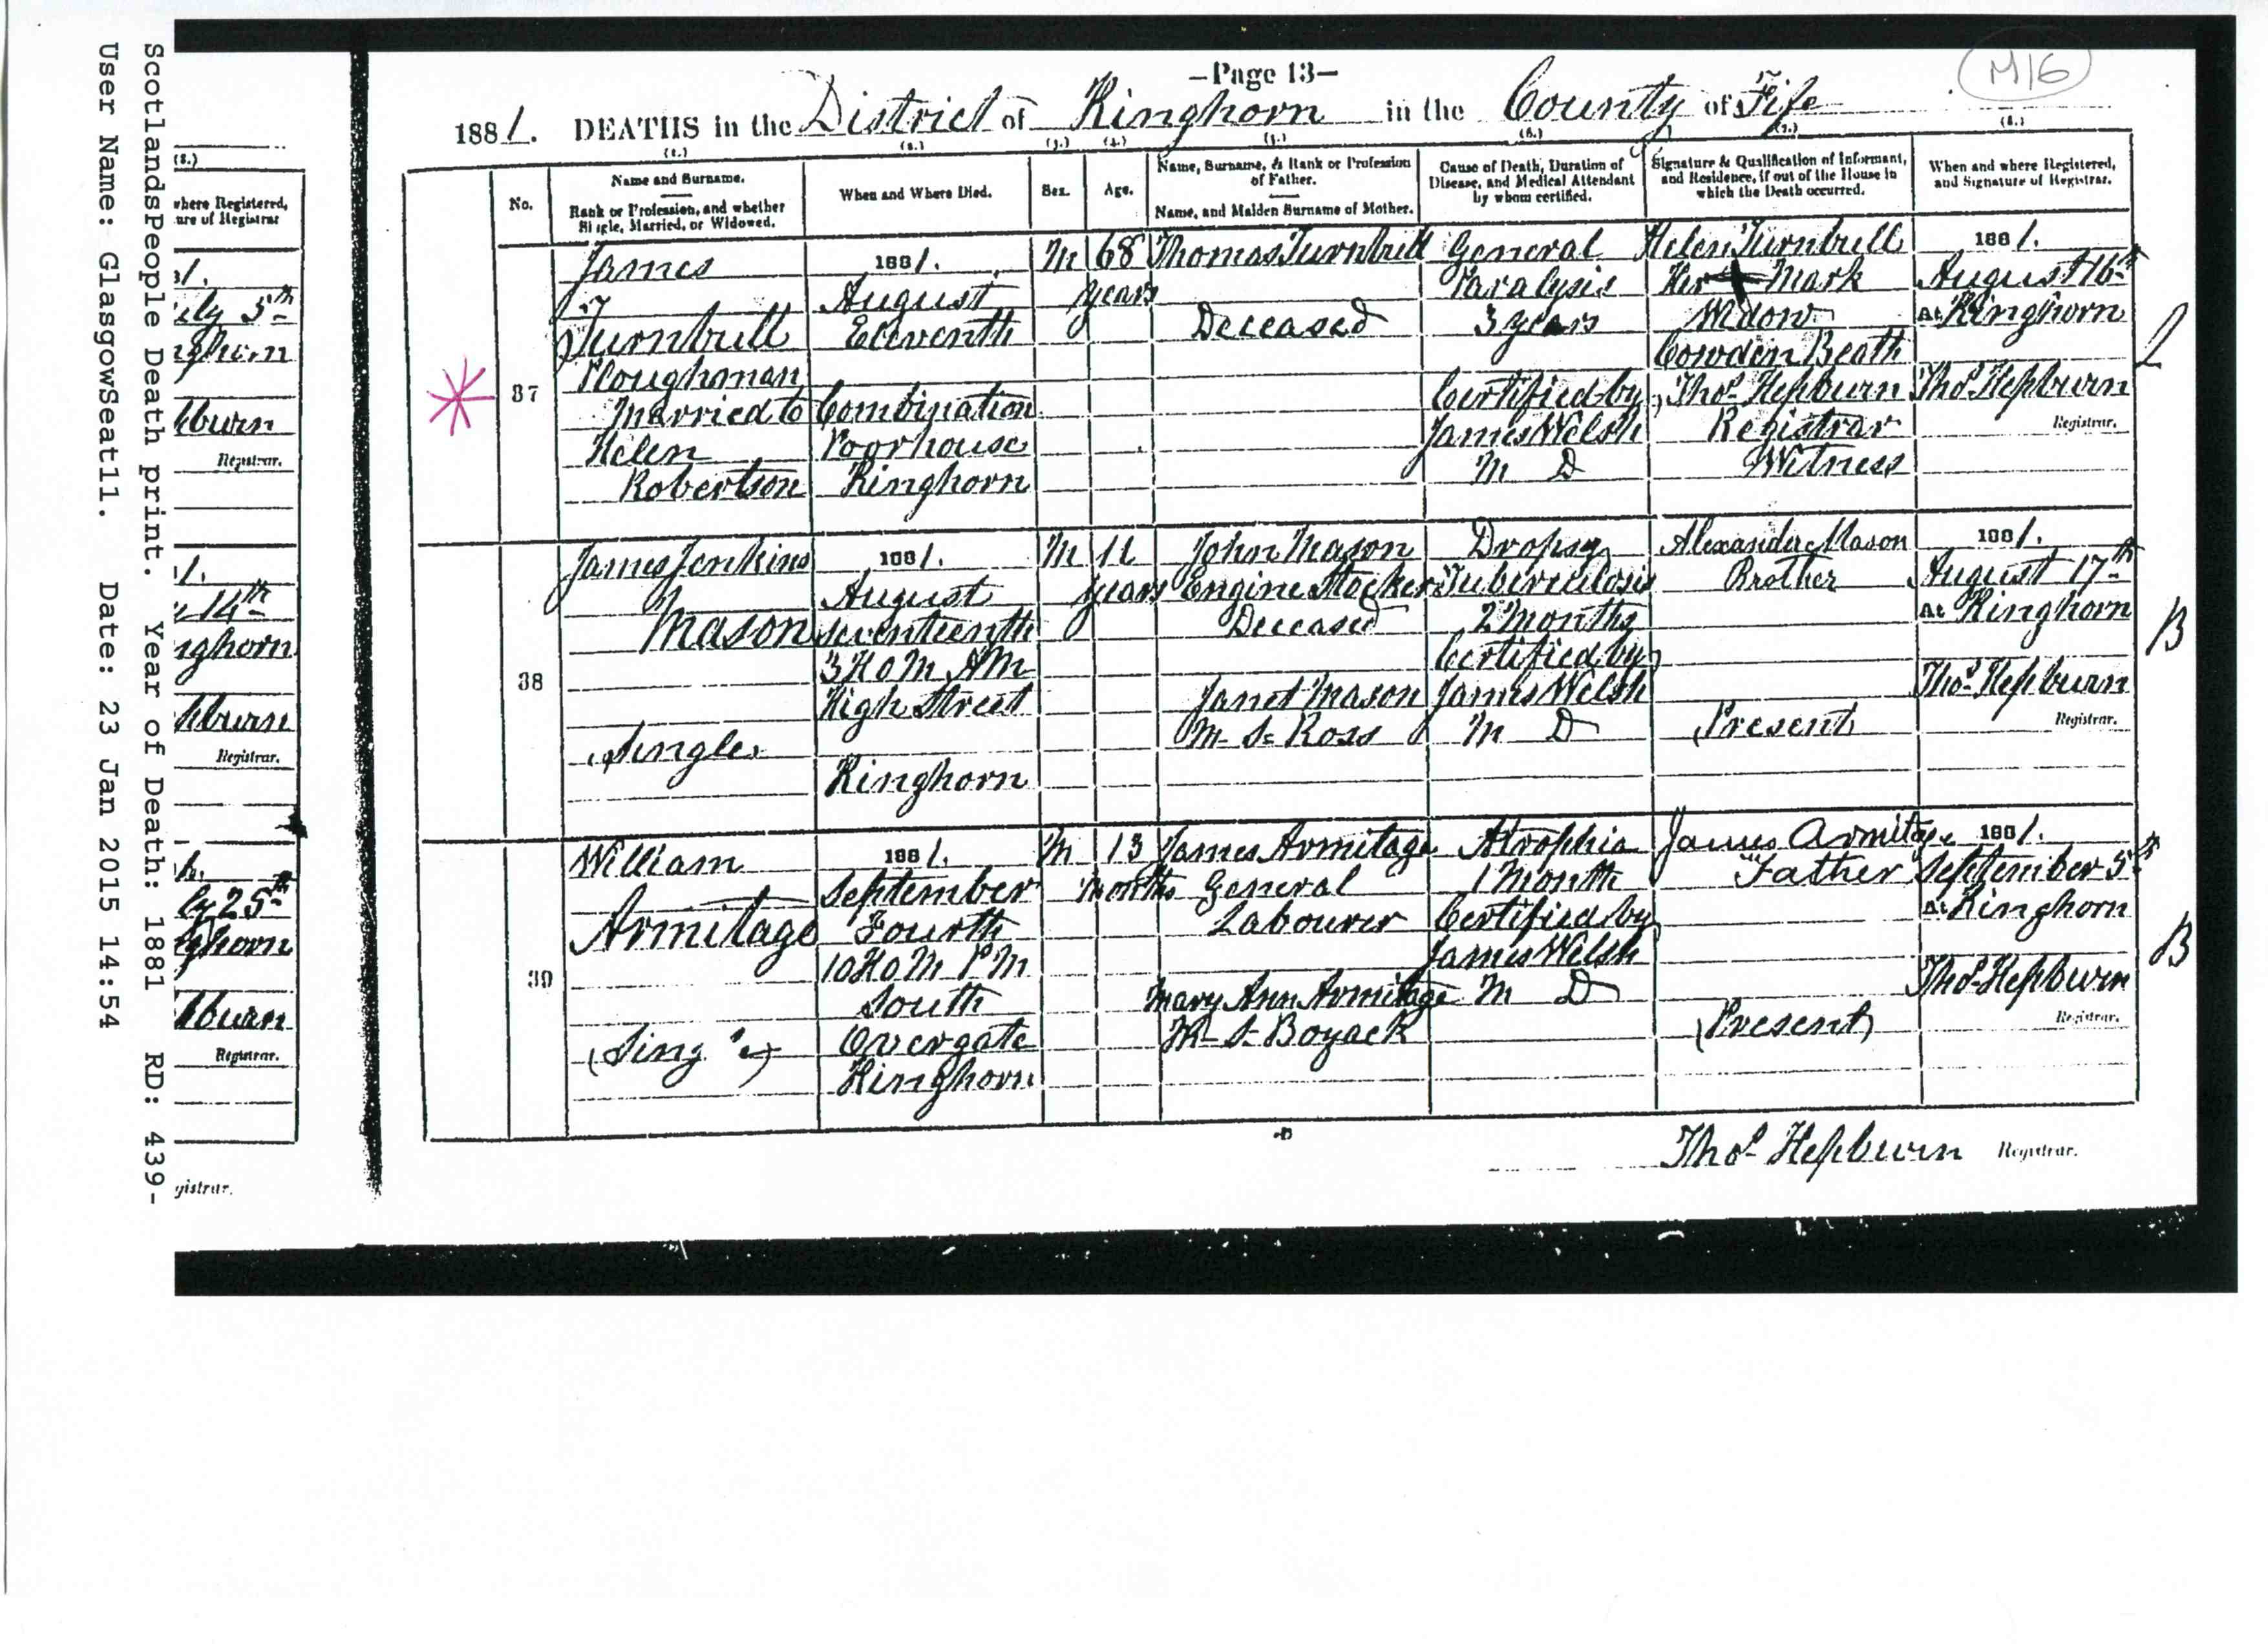 Scotlandspeople Death print. Year of Death: 1881 RD: 439-
User Name: GlasgowSeat11. Date: 23 Jan 2015 14:54
(8.)
where Registered,
ure of Registrar
Registrar.
Registrar.
Registrar.
gistrar.
M16
-Page 13-
1881. DEATHS in the District of Kinghorn in the County of Fife
(1.) (2.) (3.) (4.) (5.) (6.) (7.) (8.)
No.
Name and Surname.
Rank or Profession, and whether
Single, Married, or Widowed.
When and Where Died.
Sex.
Age.
Name, Surname, & Rank or Profession
of Father.
Name, and Maiden Surname of Mother.
Cause of Death, Duration of
Disease, and Medical Attendant
by whom certified.
Signature & Qualification of Informant,
and Residence, if out of the House in
which the Death occurred.
When and where Registered,
and Signature of Registrar.
37
James
Turnbull
Ploughman
Married to
Helen
Robertson
1881.
August
Eleventh
Combination
Poorhouse
Kinghorn
M
68
years
Thomas Turnbull
Deceased
General
Paralysis
3 years
Certified by
James Welsh
M D
Helen Turnbull
Her + Mark
Widow
Cowden Beath
Thos. Hepburn
Registrar
Witness
1881.
August 16th
At Kinghorn
Thos. Hepburn
Registrar.
38
James Jenkins
Mason
(Single)
1881.
August
Seventeenth
3 H 0 M AM
High Street
Kinghorn
M
11
years
John Mason
Engine Stocker
Deceased
Janet Mason
M. S. Ross
Dropsy
Tuberculosis
2 Months
Certified by
James Welsh
M D
Alexander Mason
Brother
(Present)
1881.
August 17th
At Kinghorn
Thos. Hepburn
Registrar.
B
39
William
Armitage
(Single)
1881.
September
Fourth
10 H 0 M PM
South
Overgate
Kinghorn
M
13
Months
James Armitage
General
Labourer
Mary Ann Armitage
M. S. Boyack
Atrophia
1 Month
Certified by
James Welsh
M D
James Armitage
Father
(Present)
1881.
September 5th
At Kinghorn
Thos. Hepburn
Registrar.
B
Thos. Hepburn Registrar.